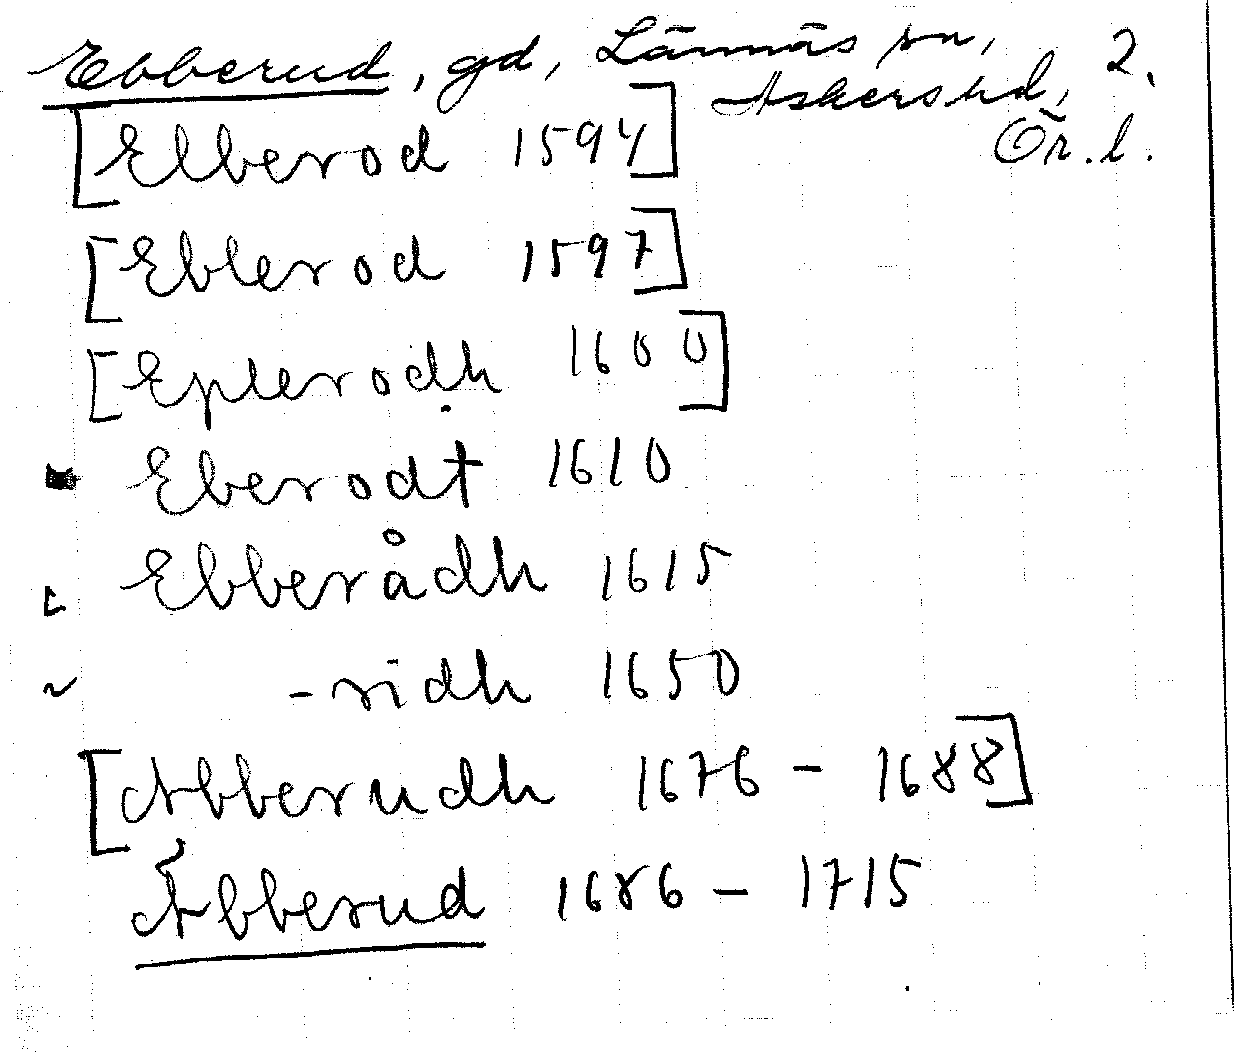 Ebberud, gd, Lännäs sn, 2.
Askers hd,
Ör. l.
[Elberod 1594]
[Eblerod 1597]
[Eplerodh 1600]
Eberodt 1610
Ebberådh 1615
-ridh 1650
[Abberudh 1676 - 1688]
Äbberud 1686 - 1715